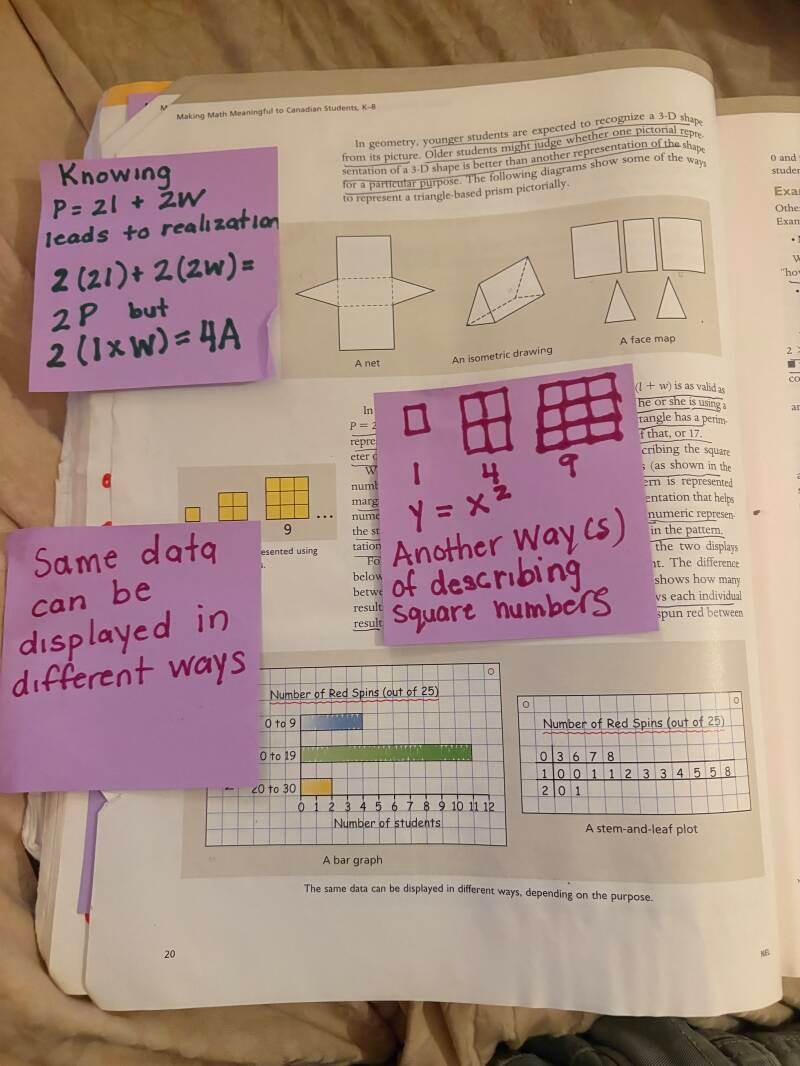 M
Making Math Meaningful to Canadian Students, K–8
In geometry, younger students are expected to recognize a 3-D shape
from its picture. Older students might judge whether one pictorial repre-
sentation of a 3-D shape is better than another representation of the shape
for a particular purpose. The following diagrams show some of the ways
to represent a triangle-based prism pictorially.
Knowing
P = 2l + 2W
leads to realization
2(2l) + 2(2W) =
2P but
2(l x W) = 4A
A net
An isometric drawing
A face map
In
P = 2
repre
eter o
W
numb
marg
nume
the st
tation
Fo
below
betwe
result
result
(l + w) is as valid as
he or she is using a
tangle has a perim-
f that, or 17.
cribing the square
s (as shown in the
ern is represented
entation that helps
numeric represen-
in the pattern.
the two displays
nt. The difference
shows how many
ws each individual
spun red between
1 4 9
y = x²
Another way(s)
of describing
square numbers
9 ...
esented using
s.
Same data
can be
displayed in
different ways
Number of Red Spins (out of 25)
0 to 9
0 to 19
20 to 30
0 1 2 3 4 5 6 7 8 9 10 11 12
Number of students
A bar graph
Number of Red Spins (out of 25)
0 3 6 7 8
1 0 0 1 1 2 3 3 4 5 5 8
2 0 1
A stem-and-leaf plot
The same data can be displayed in different ways, depending on the purpose.
20
NEL
0 and
studen
Exa
Othe
Exan
W
"how
2
co
an